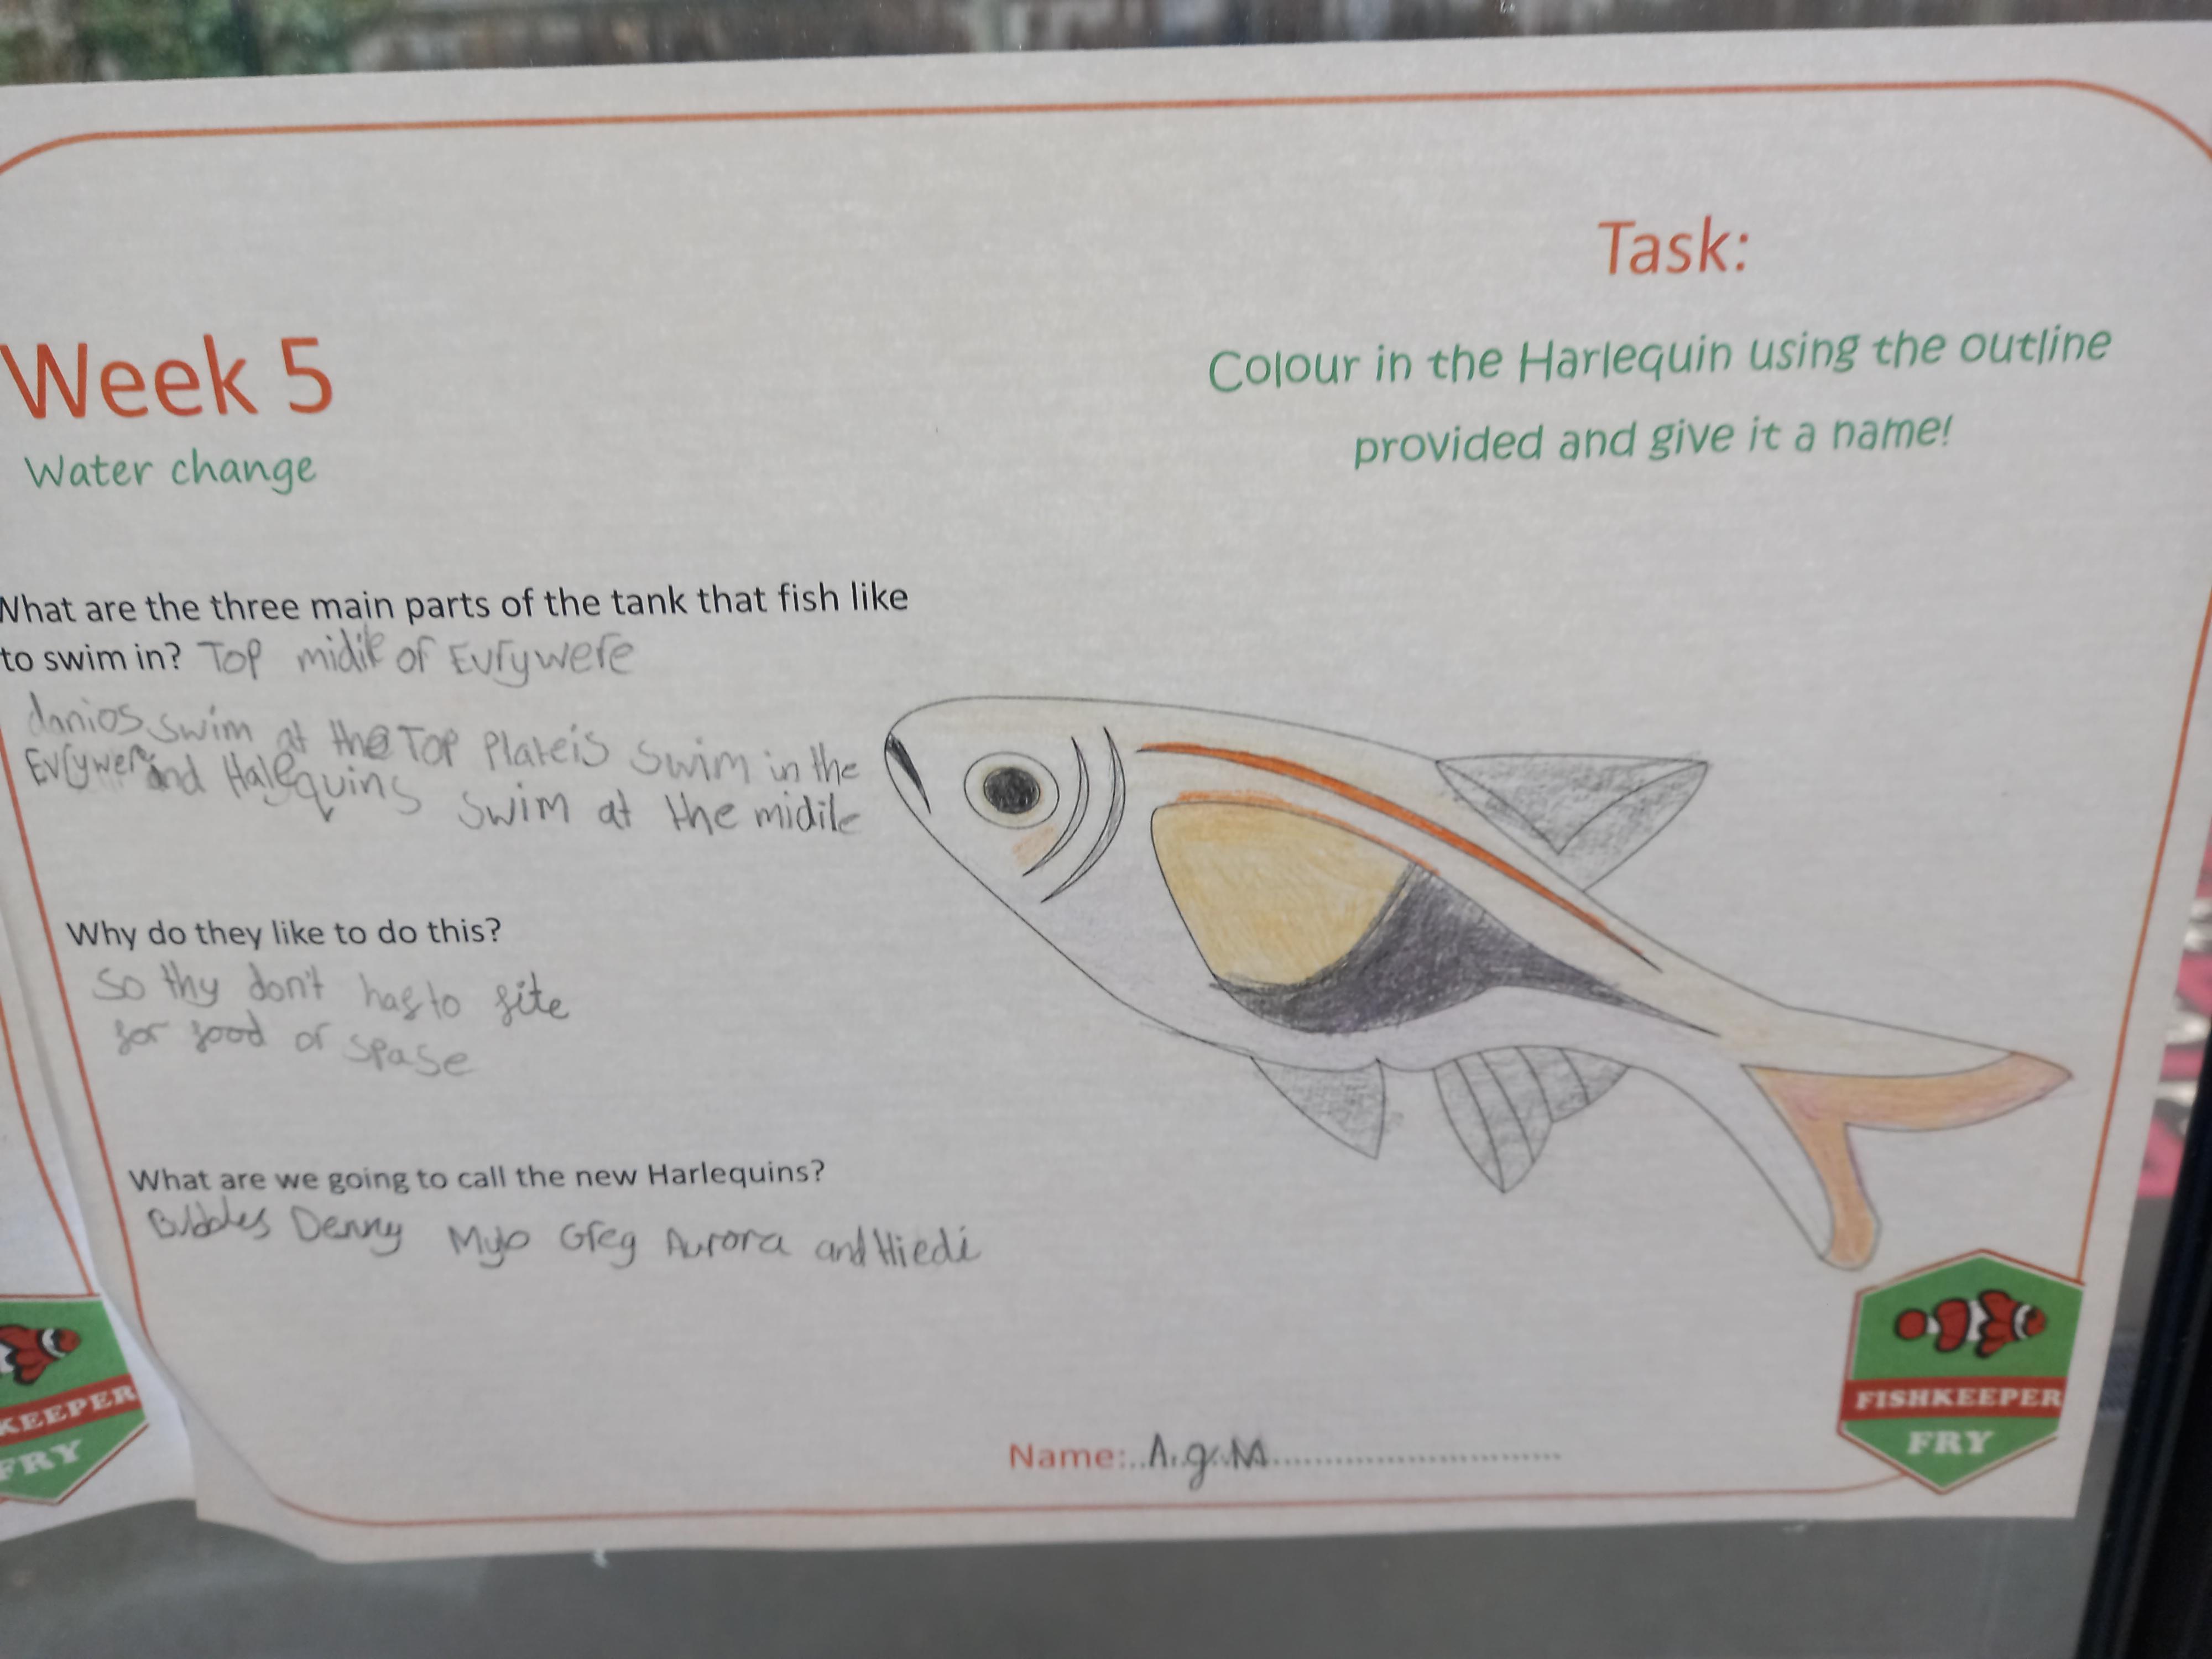 Week 5
Water change
Task:
Colour in the Harlequin using the outline
provided and give it a name!
What are the three main parts of the tank that fish like
to swim in? Top midile or Evrywere
danios swim at the Top Plateis swim in the
Evrywere and Halequins swim at the midile
Why do they like to do this?
So thy don't haf to fite
for food or Spase
What are we going to call the new Harlequins?
Bubbles Denny Mylo Greg Aurora and Hiedi
Name: A.g.M
FISHKEEPER
FRY
KEEPER
FRY